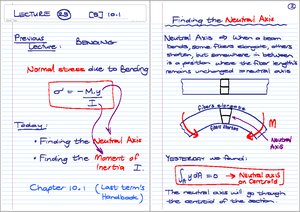 LECTURE 23 [S] 10.1
Previous
Lecture: BENDING
Normal stress due to Bending
σ = -M.y
I
Today:
• Finding the Neutral Axis
• Finding the Moment of
Inertia I.
Chapter 10.1 (Last term's
Handbook)
2
Finding the Neutral Axis
Neutral Axis ⇒ When a beam
bends, some fibers elongate, others
shorten, but somewhere in between
is a position where the fiber length's
remains unchanged ⇒ neutral axis
fibers elongate
fibers shorten
M
Neutral
Axis
Yesterday we found:
∫ y dA = 0 → Neutral axis
on Centroid
The neutral axis will go through
the centroid of the section.